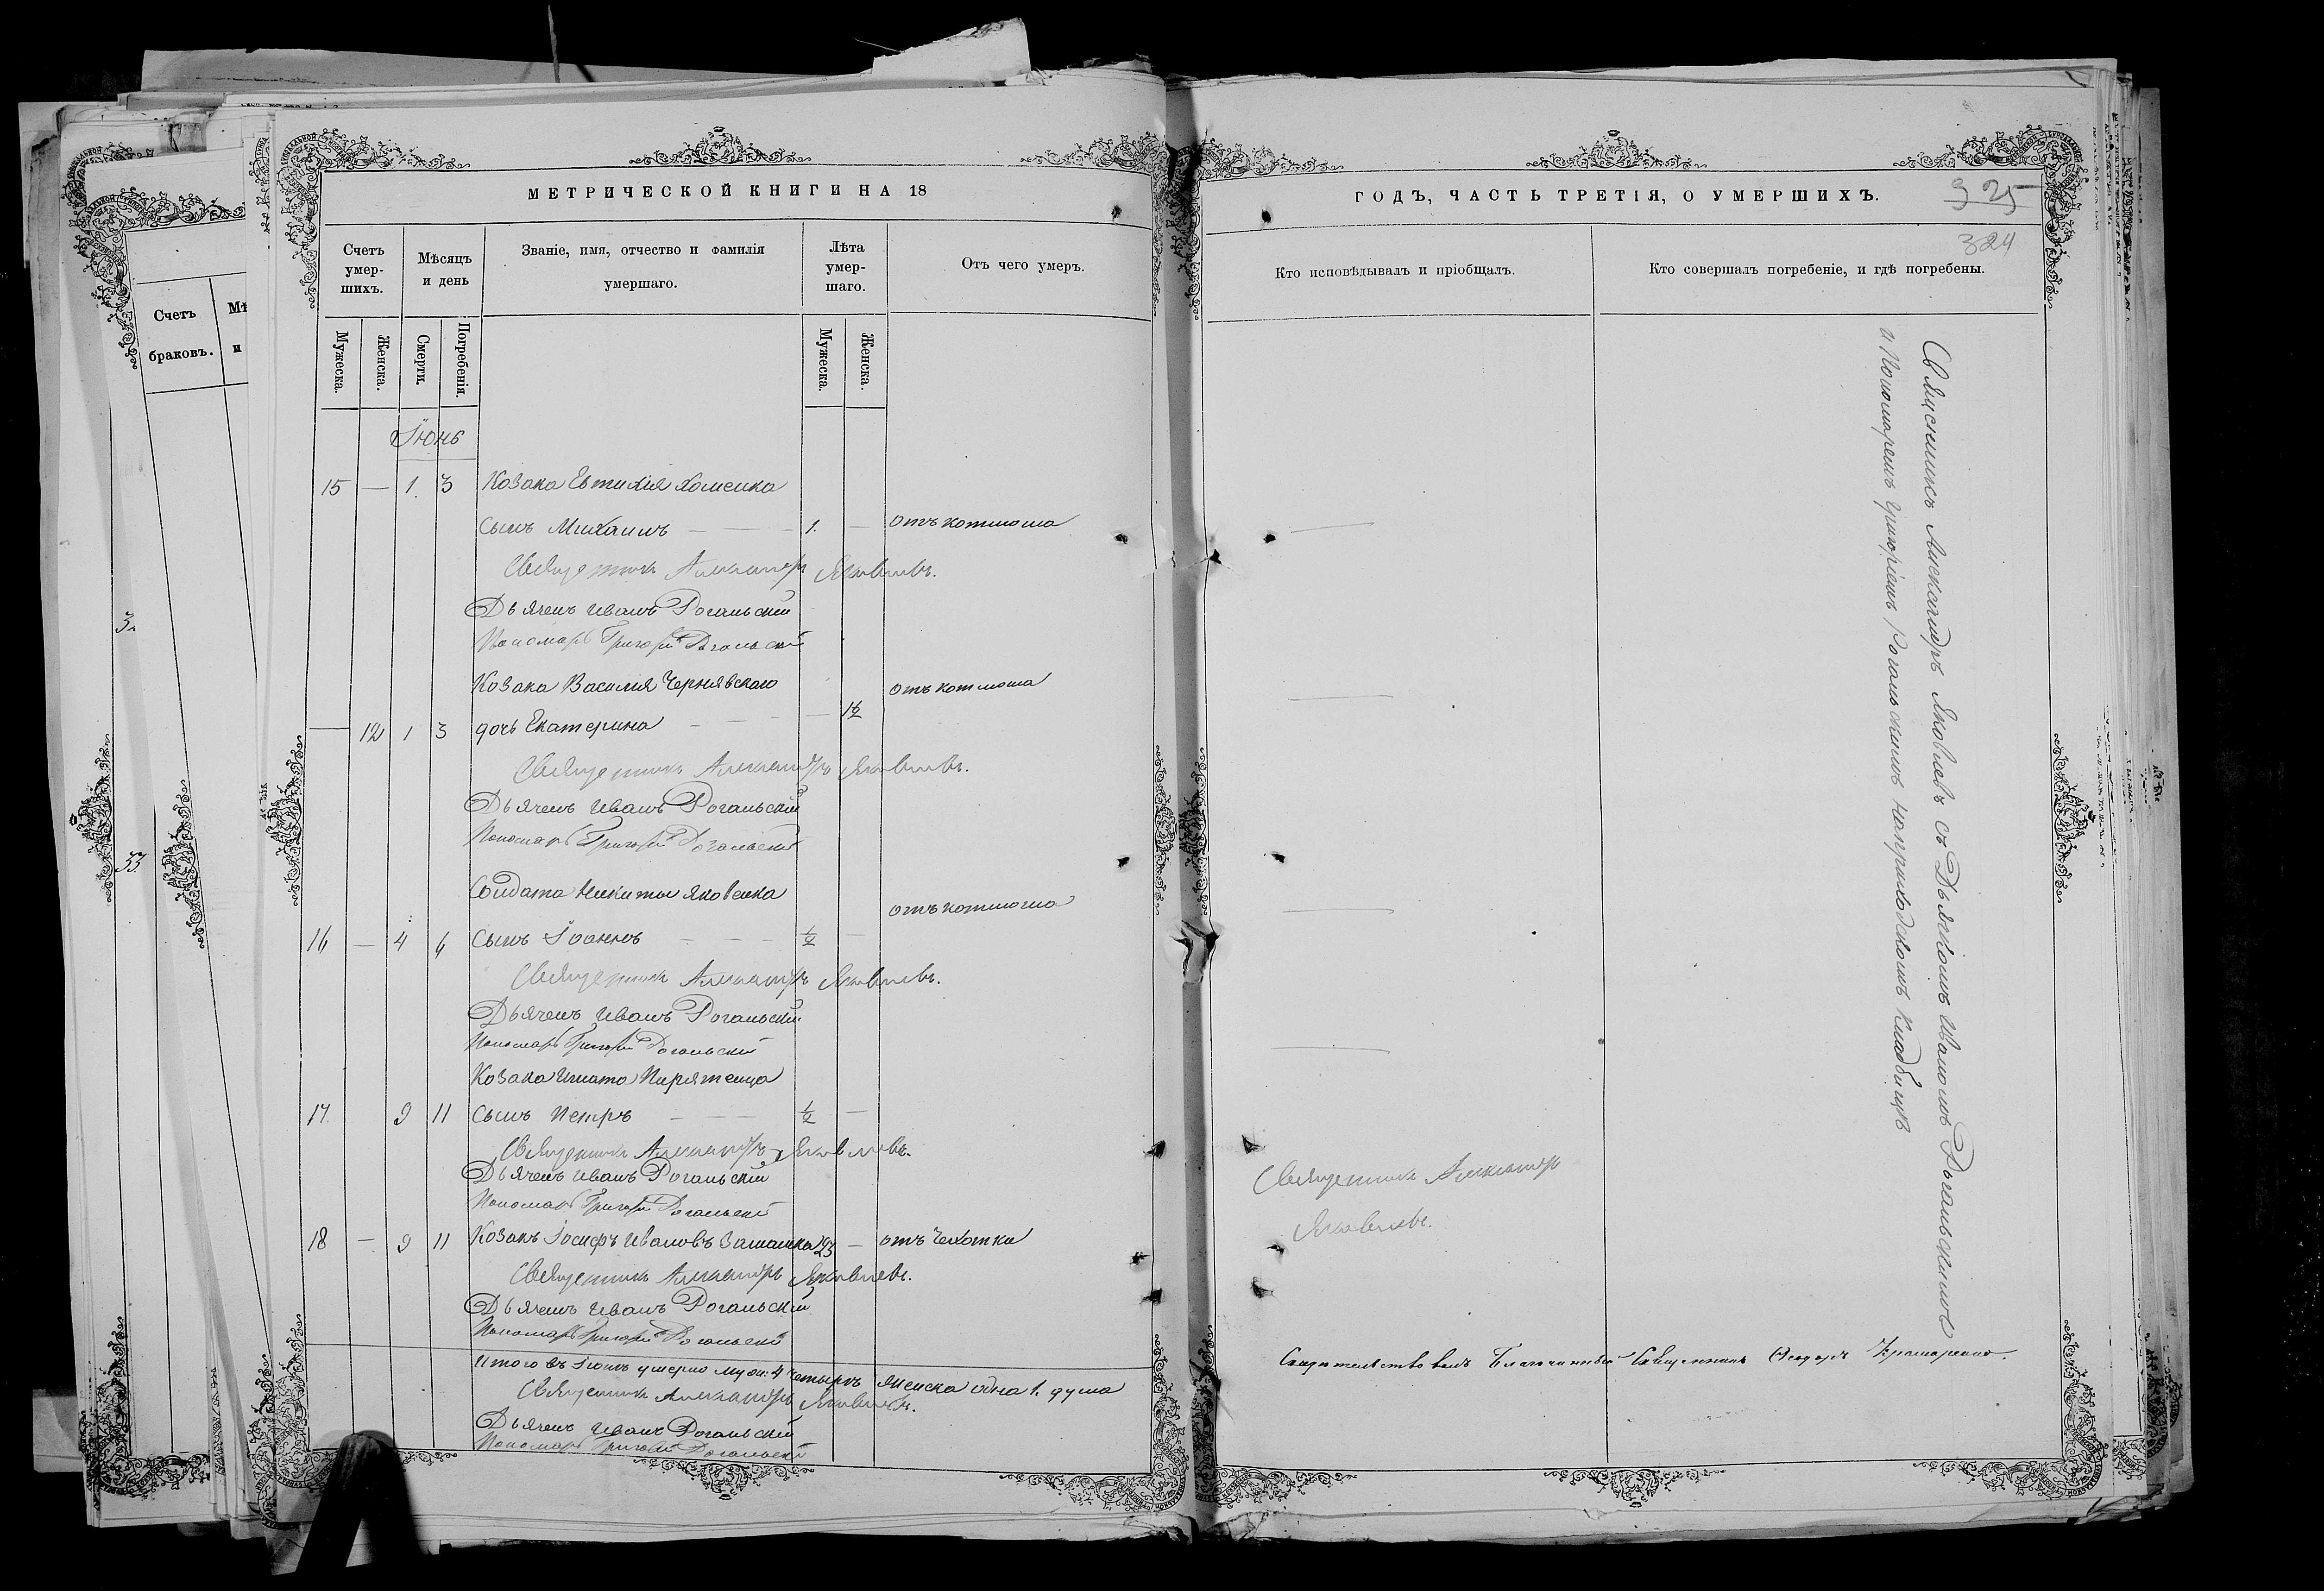 МЕТРИЧЕСКОЙ КНИГИ НА 18
Счетъ умер-шихъ.
Мѣсяцъ и день
Званіе, имя, отчество и фамилія умершаго.
Лѣта умер-шаго.
Отъ чего умеръ.
Мужеска.
Женска.
Смерти.
Погребенія.
Мужеска.
Женска.
Іюнь
15 — 1. 3 Козака Евтихія Хоменка
Сынъ Михаилъ — 1. — отъ коклюша
Священникъ Александръ Яковлевъ.
Дьячекъ Иванъ Рогальскій
Пономарь Григорій Рогальскій
Козака Василія Чернявскаго отъ коклюша
— 12 1 3 дочь Екатерина — — 1½
Священникъ Александръ Яковлевъ.
Дьячекъ Иванъ Рогальскій
Пономарь Григорій Рогальскій
Солдата Никиты Яковенка отъ коклюша
16 — 4 6 Сынъ Іоаннъ — ½ —
Священникъ Александръ Яковлевъ.
Дьячекъ Иванъ Рогальскій
Пономарь Григорій Рогальскій
Козака Игната Пирятенца
17. 9 11 Сынъ Петръ — ½ —
Священникъ Александръ Яковлевъ.
Дьячекъ Иванъ Рогальскій
Пономарь Григорій Рогальскій
18 — 9 11 Козакъ Іосифъ Ивановъ 23 — отъ чехотки
Священникъ Александръ Яковлевъ.
Дьячекъ Иванъ Рогальскій
Пономарь Григорій Рогальскій
Итого въ Іюнѣ умерло муж: 4 четыре женска одна 1. душа
Священникъ Александръ Яковлевъ.
Дьячекъ Иванъ Рогальскій
Пономарь Григорій Рогальскій
ГОДЪ, ЧАСТЬ ТРЕТІЯ, О УМЕРШИХЪ.
325
324
Кто исповѣдывалъ и пріобщалъ.
Кто совершалъ погребеніе, и гдѣ погребены.
Священникъ Александръ Яковлевъ съ Дьячкомъ Иваномъ Рогальскимъ
и Пономаремъ Григоріемъ Рогальскимъ на приходскомъ кладбищѣ
Священникъ Александръ
Яковлевъ.
Свидетельствовалъ Благочинный Священникъ Феодоръ Крамаренко.
Счетъ браковъ.
Мѣ
и
33